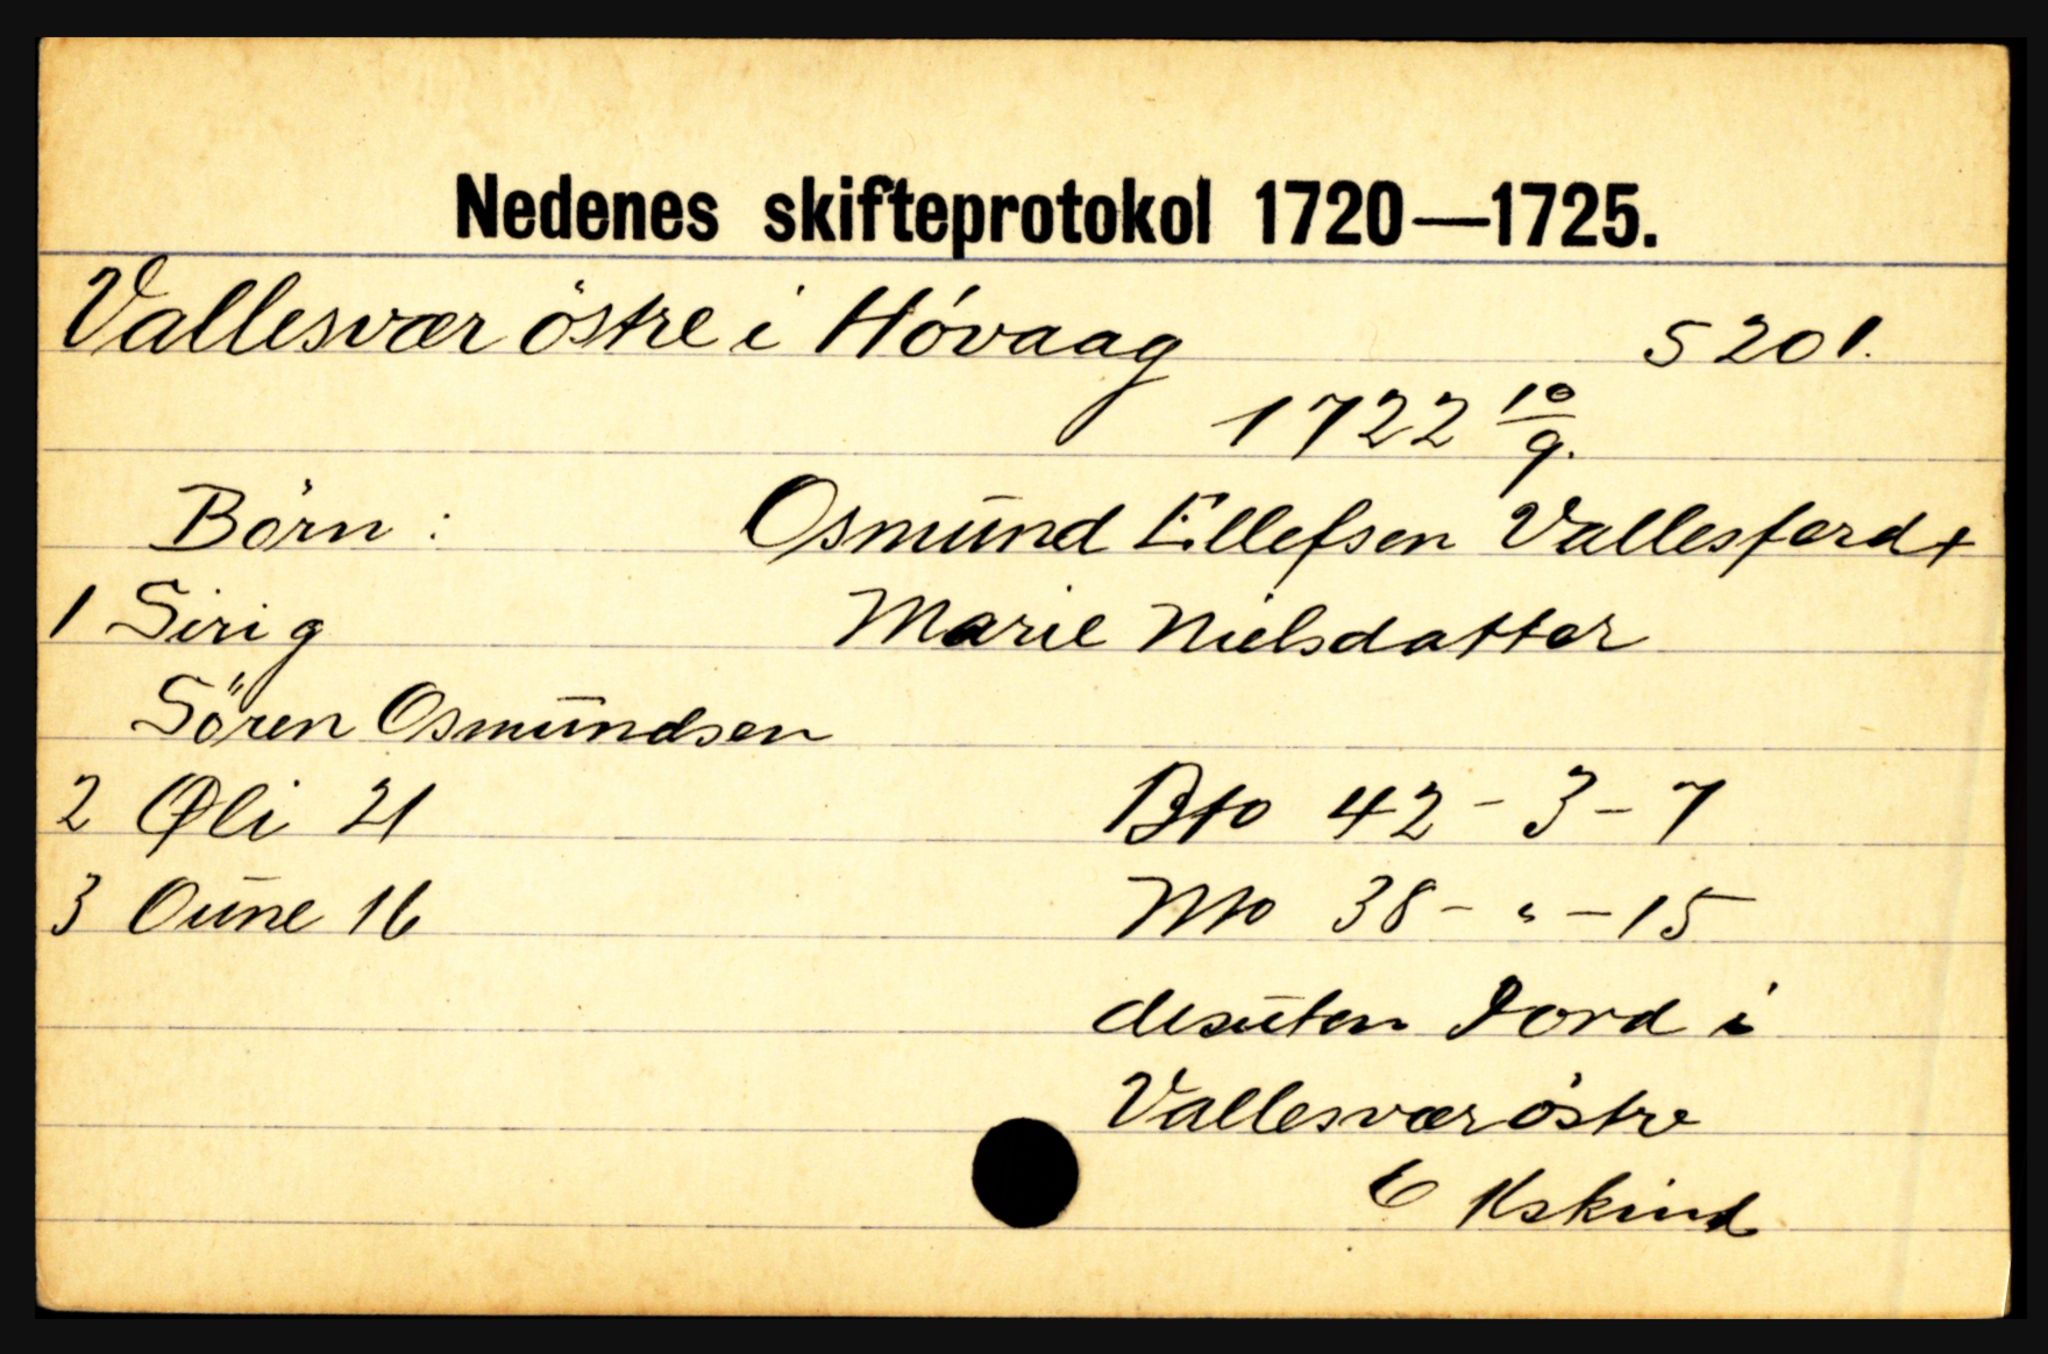 Nedenes skifteprotokol 1720—1725.
Vallesvær östre i Hövaag 5201.
1722 10/9.
Börn: Osmund Ellefsen Vallesferd +
1 Sirig Marie Nielsdatter
Sören Osmundsen
2 Øli 21 Bto 42 - 3 - 7
3 Oune 16 Nto 38 - " - 15
desuten Jord i
Vallesvær östre
6 Kskind